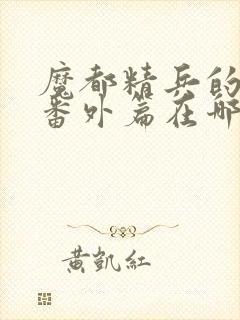 魔都精兵的
番外篇在哪
黄凯红